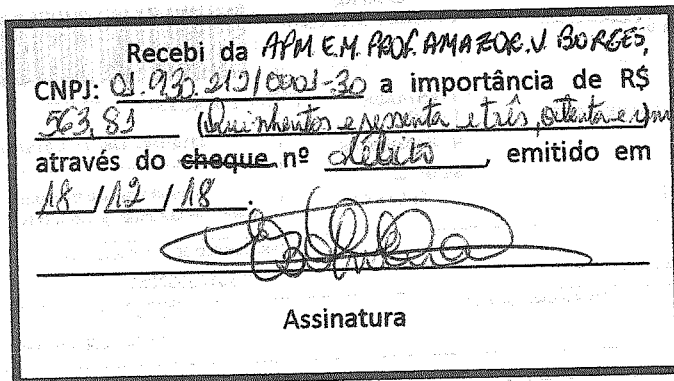 Recebi da APM E.M. PROF. AMAZOR. V. BORGES,
CNPJ: 01.930.212/0001-30 a importância de R$
563,81 (Quinhentos e sessenta e três, oitenta e um
através do cheque nº débito, emitido em
18 / 12 / 18.
Assinatura